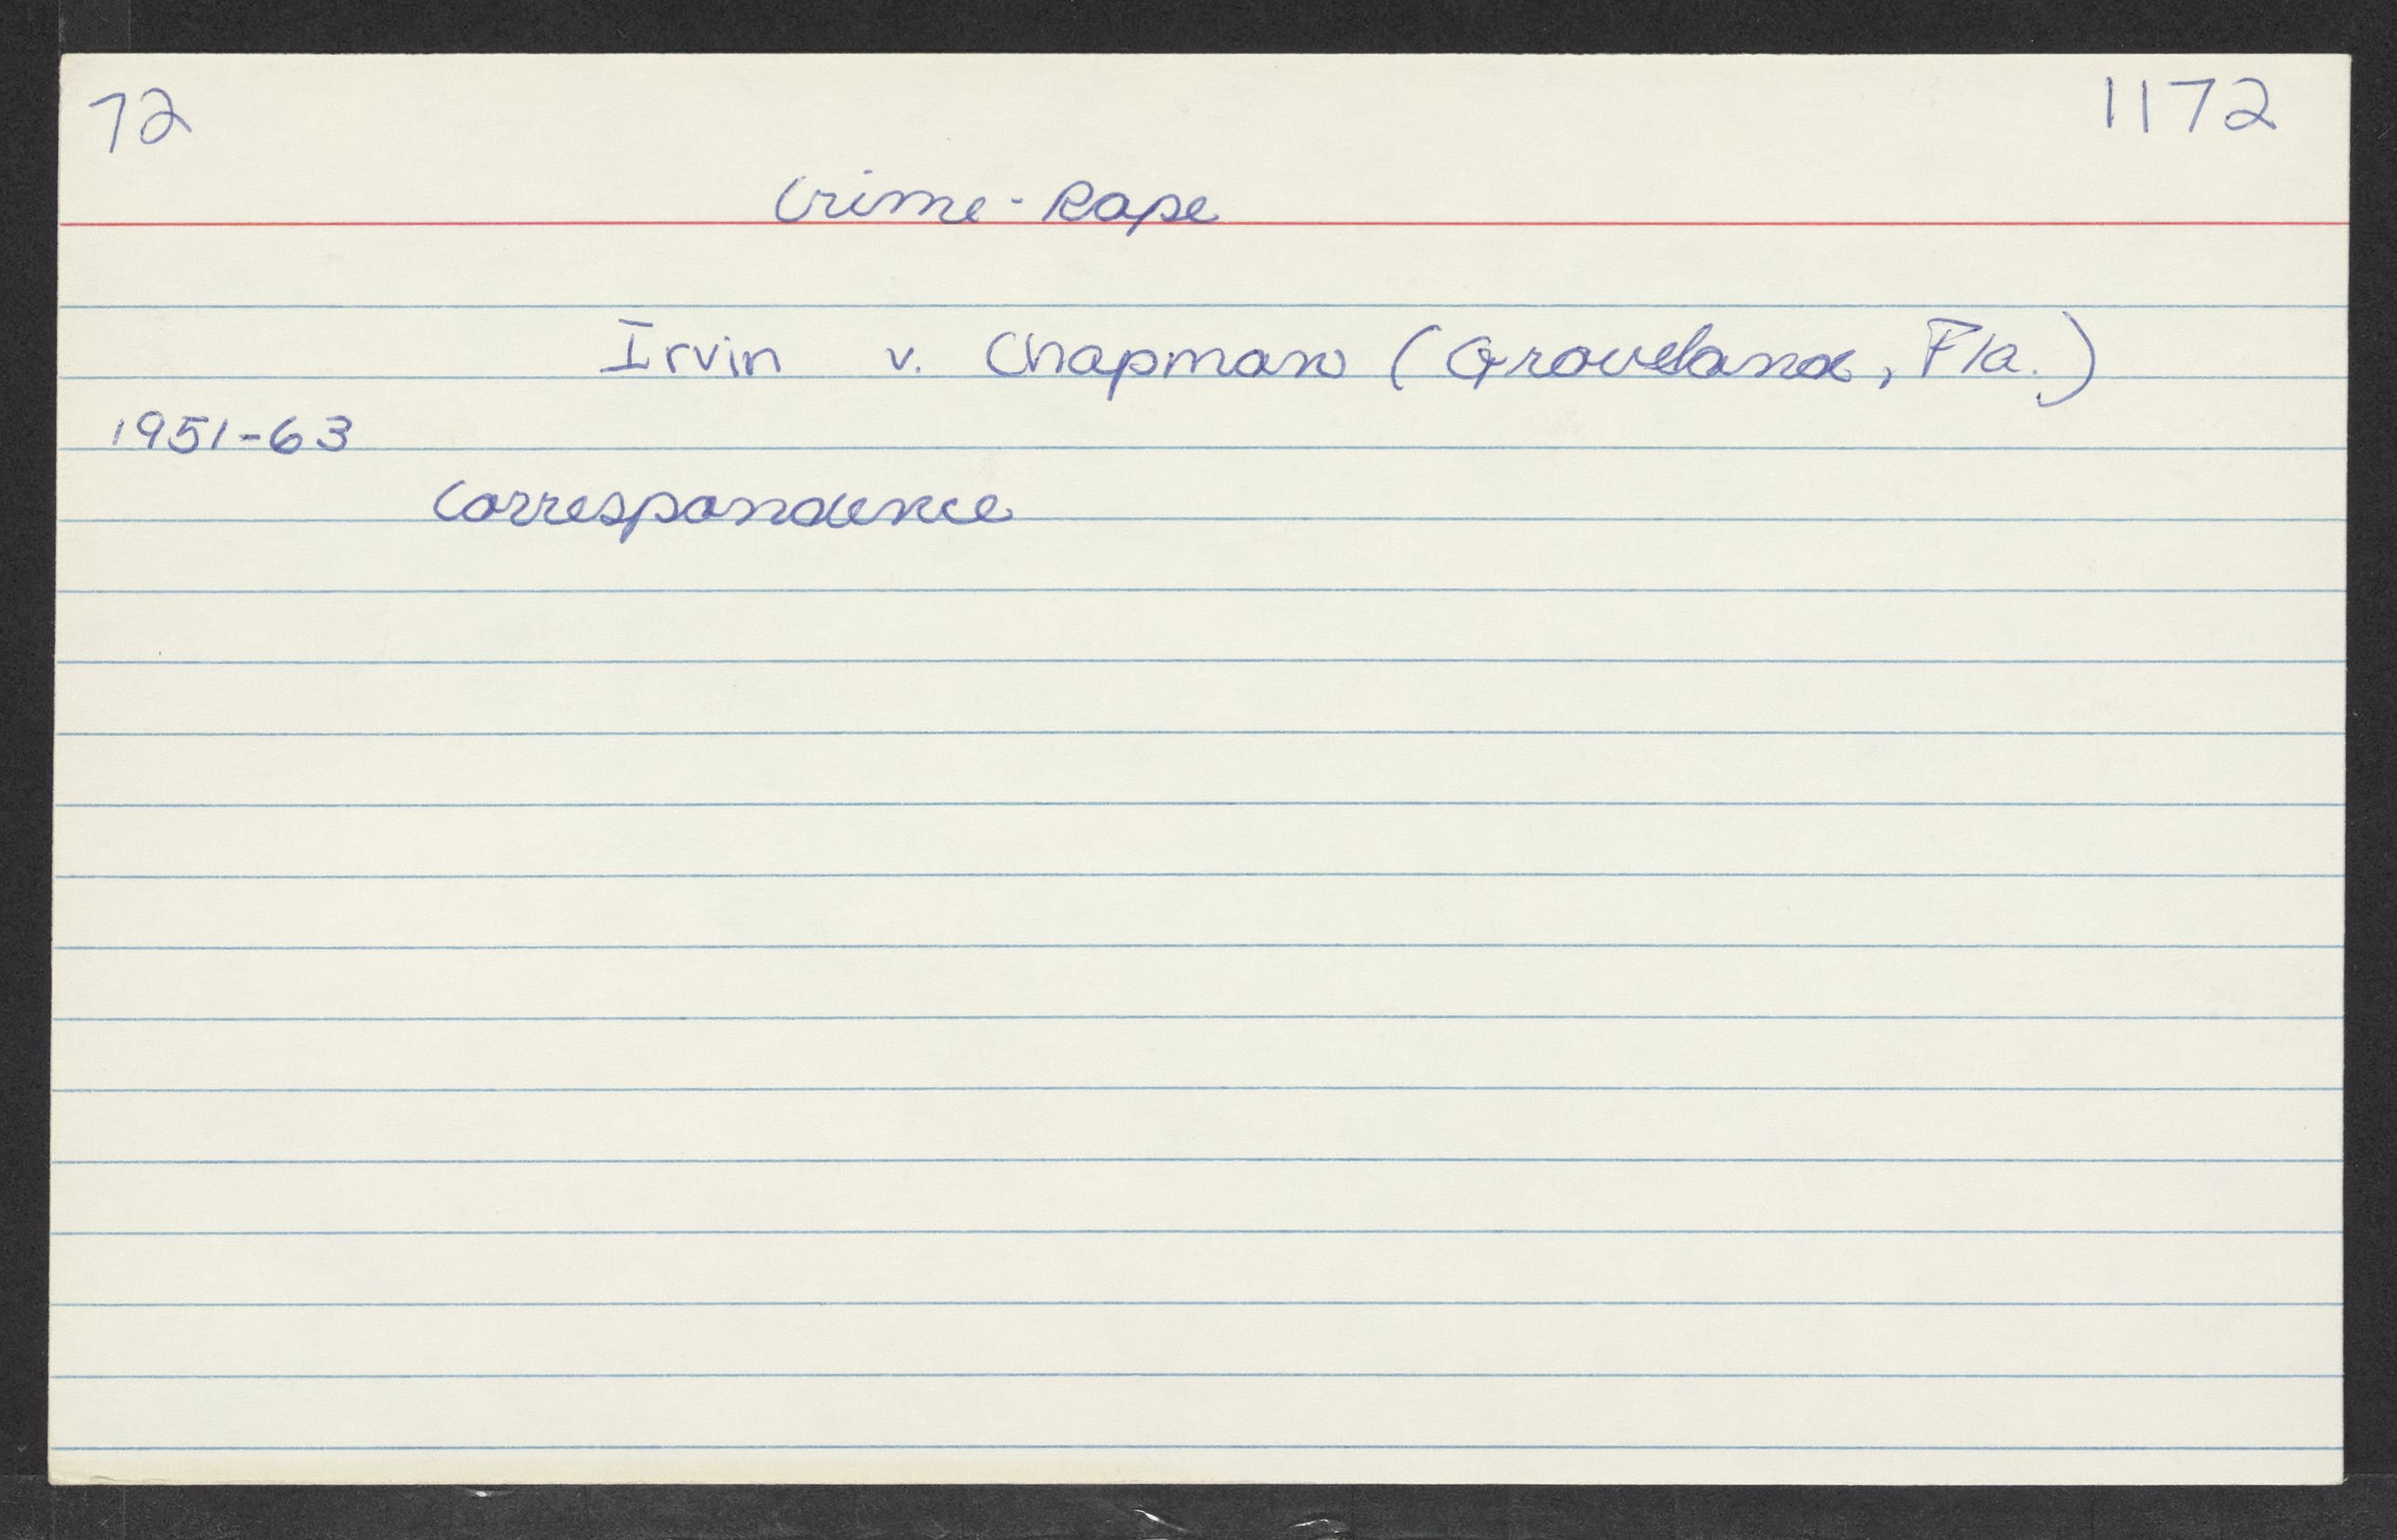 72 1172
Crime - Rape
Irvin v. Chapman (Groveland, Fla.)
1951-63
Correspondence